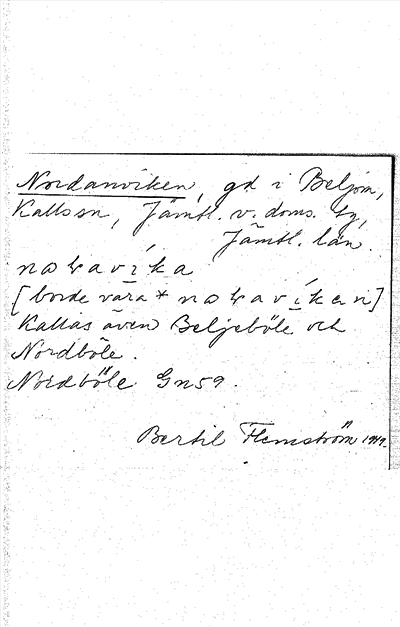 Nordanviken, gd i Beljom,
Kallssn, Jämtl. v. doms. tg,
Jämtl. län.
[borde vara *
Kallas även Beljeböle och
Nordböle.
Nordböle Gn59.
Bertil Flemström 1949.